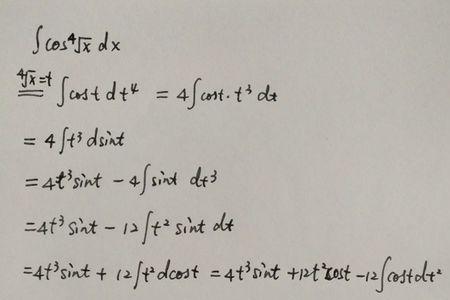 ∫cos⁴√x dx
⁴√x=t ∫cost dt⁴ = 4∫cost·t³ dt
= 4∫t³ dsint
=4t³sint - 4∫sint dt³
=4t³sint - 12∫t² sint dt
=4t³sint + 12∫t²dcost = 4t³sint +12t²cost -12∫costdt²